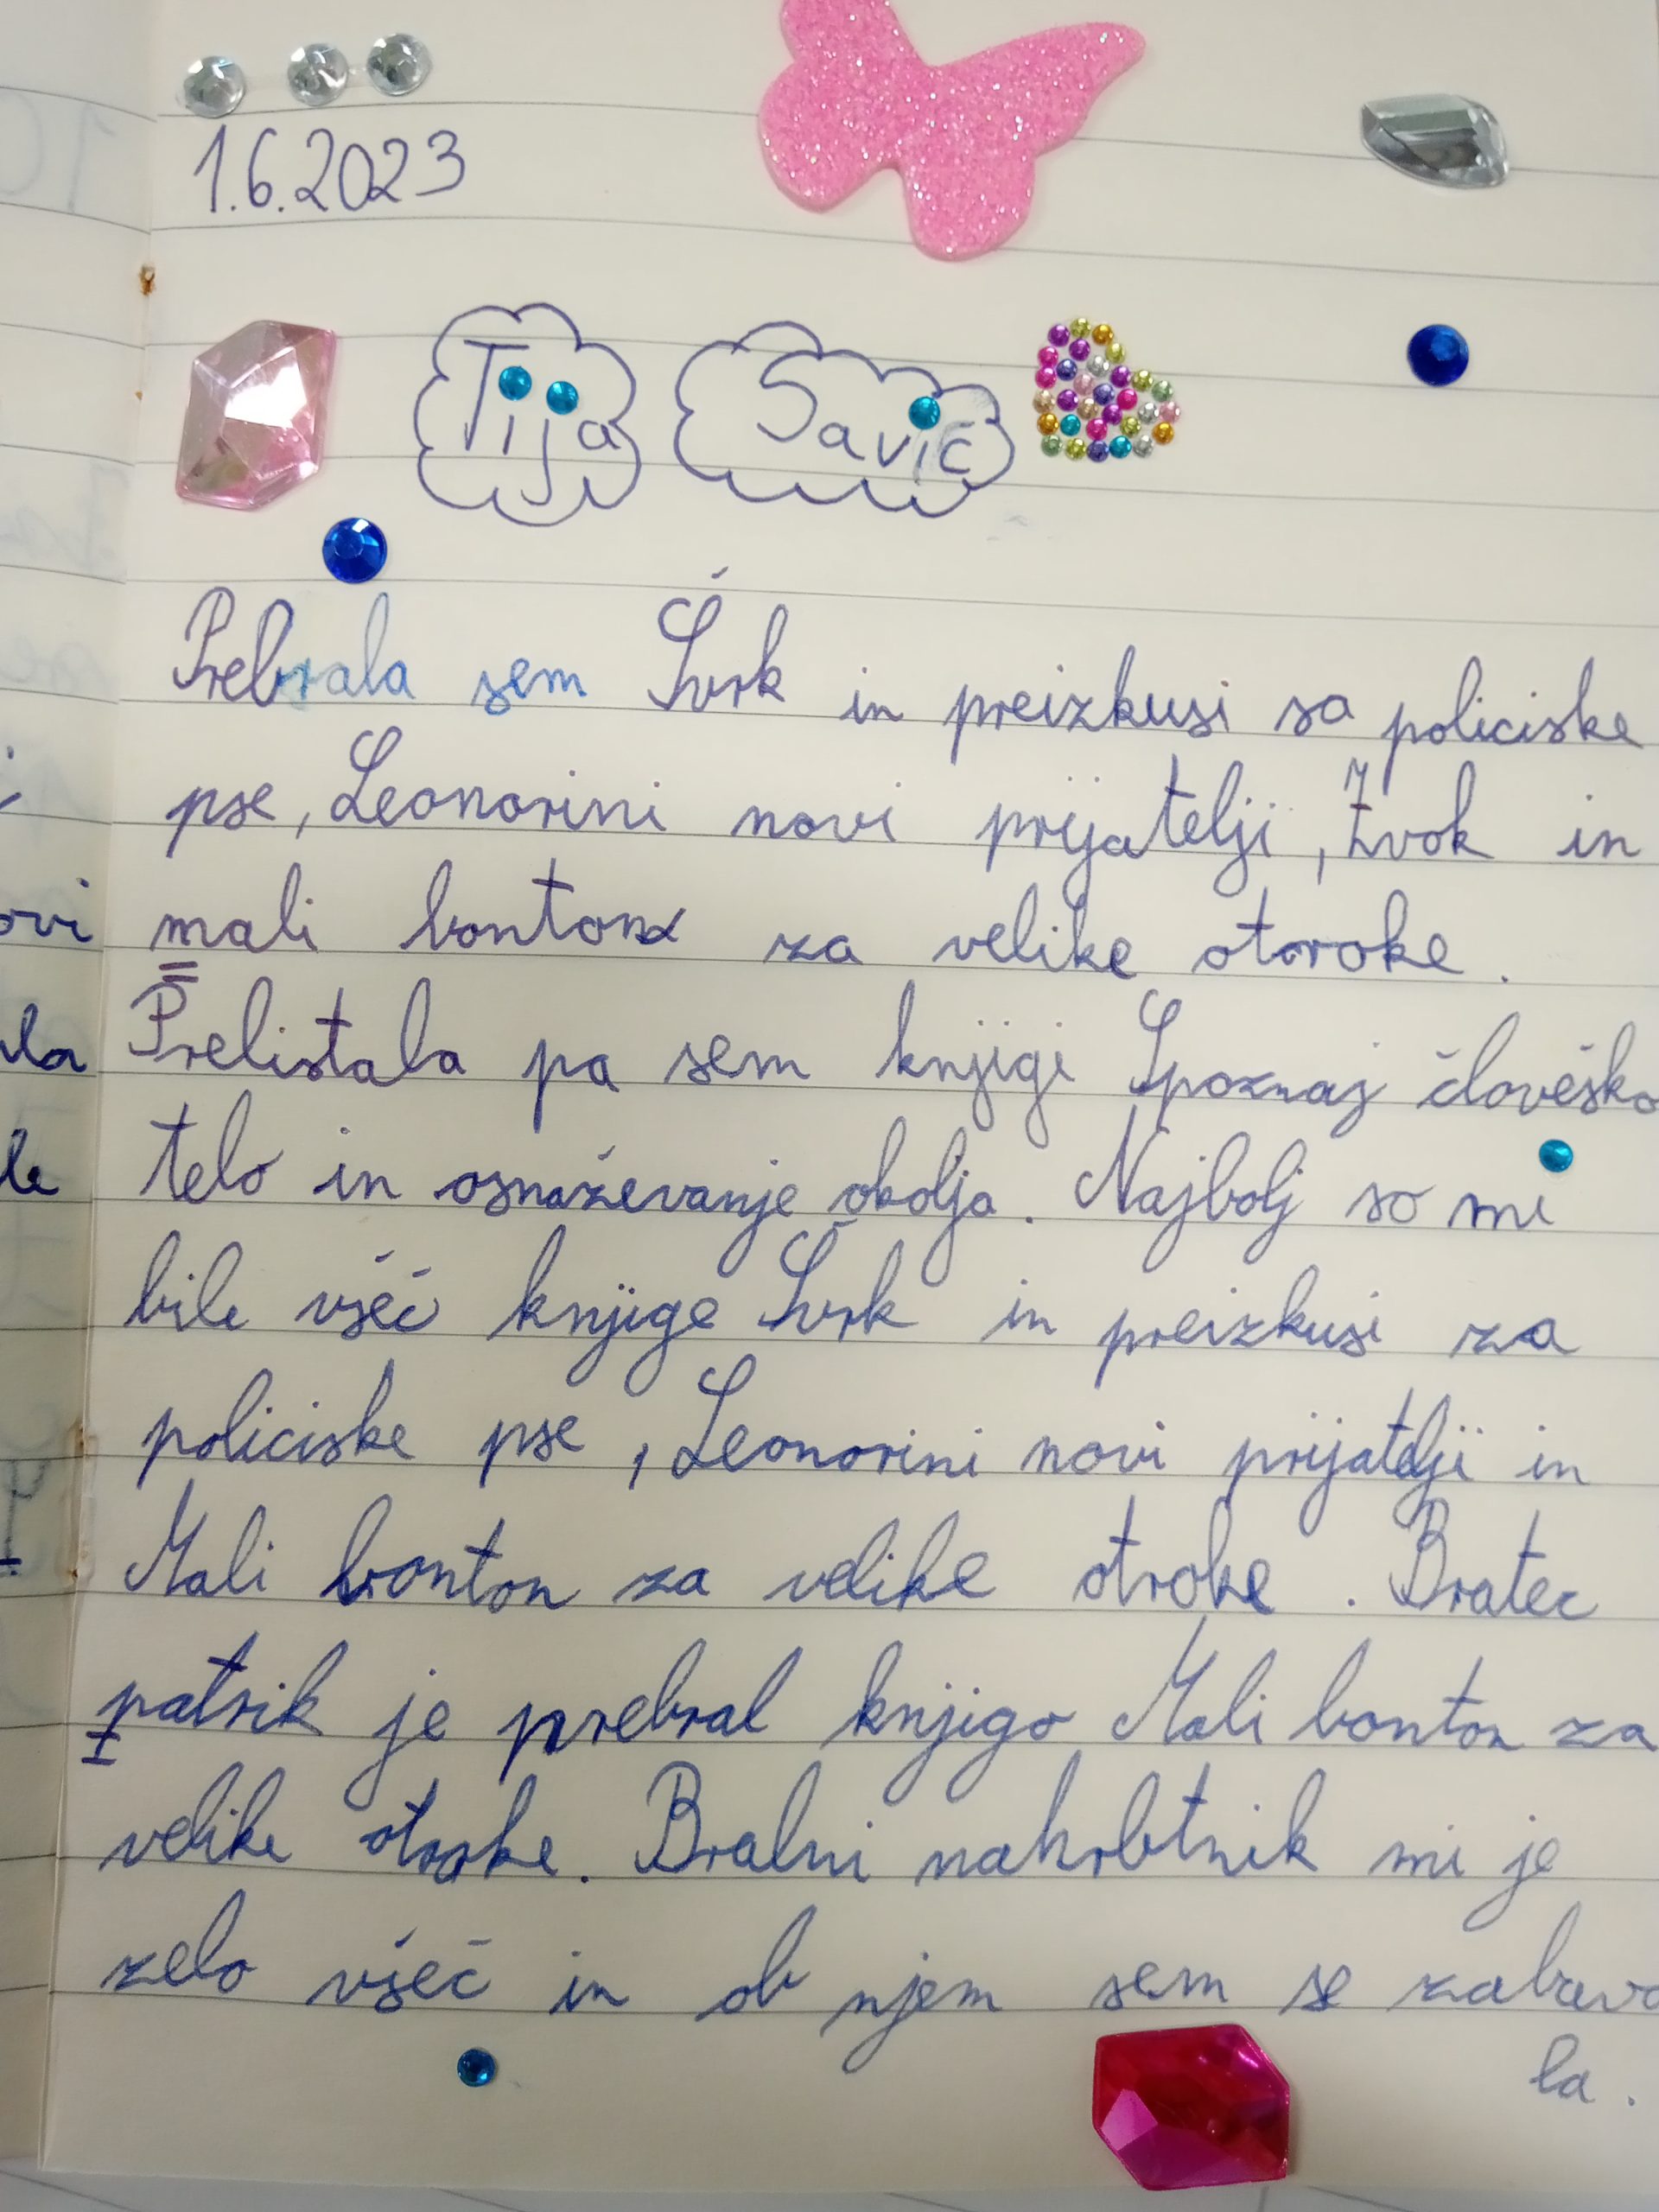 1.6.2023
Tija Savič
Prebrala sem Švrk in preizkusi sa policiske
pse, Leonorini novi prijatelji, Zvok in
mali bonton za velike otoroke.
Prelistala pa sem knjigi Spoznaj človeško
telo in osnaževanje okolja. Najbolj so mi
bile všeč knjige Švrk in preizkusi za
policiske pse, Leonorini novi prijatelji in
Mali bonton za velike otroke. Bratec
patrik je prebral knjigo Mali bonton za
velike otroke. Bralni nahrbtnik mi je
zelo všeč in ob njem sem se zabava
la.
ovi
la
le